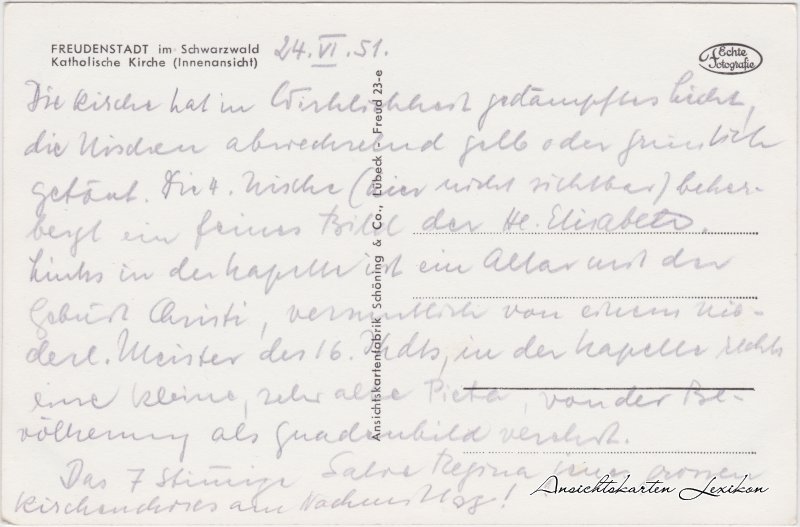 FREUDENSTADT im Schwarzwald
Katholische Kirche (Innenansicht)
24.VI.51.
Echte Fotografie
Die Kirche hat in Wirklichkeit gedämpftes Licht,
die Nischen abwechselnd gelb oder grünlich
getönt. Die 4. Nische (hier nicht sichtbar) beher-
bergt ein feines Bild der Hl. Elisabeth.
Links in der Kapelle ist ein Altar mit der
Geburt Christi, vermutlich von einem nie-
derl. Meister des 16. Jhdts, in der Kapelle rechts
eine kleine, sehr alte Pieta, von der Be-
völkerung als Gnadenbild verehrt.
Das 7 stimmige Salve Regina eines grossen
Kirchenchores am Nachmittag!
Ansichtskartenfabrik Schöning & Co., Lübeck - Freud 23-e
Ansichtskarten Lexikon